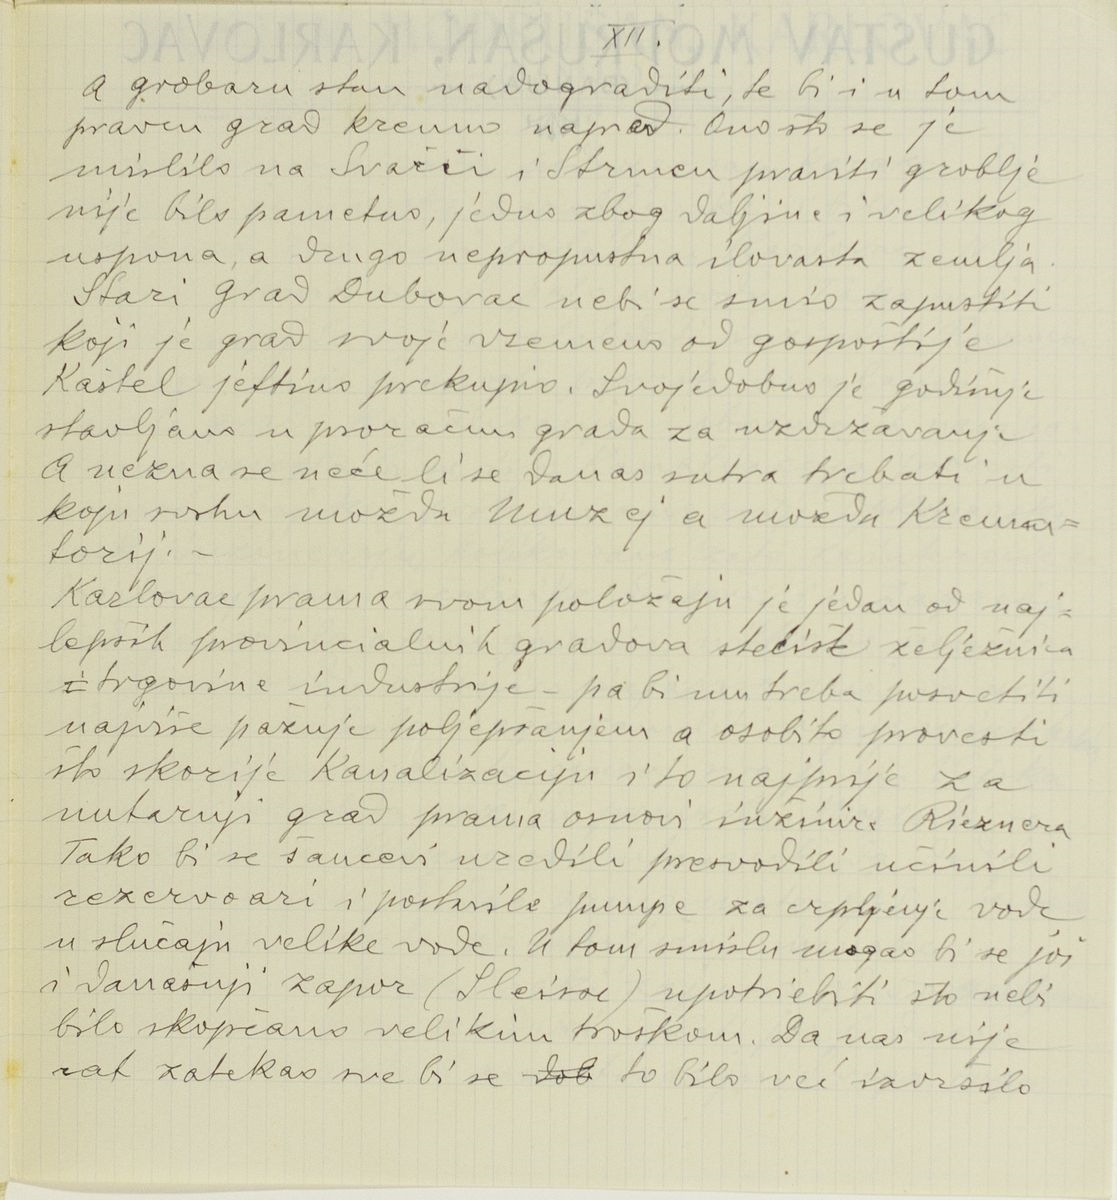 XII.
A grobaru stan nadograditi, te bi i u tom
pravcu grad krenuo napred. Ono što se je
mislilo na Švarči i Strmcu praviti groblje
nije bilo pametno, jedno zbog daljine i velikog
uspona, a drugo nepropustna ilovasta zemlja.
Stari Grad Dubovac nebi se smio zapustiti
koji je grad svoje vremeno od gospoštije
Kaštel jeftino prekupio. Svojedobno je godišnje
stavljano u proračun grada za uzdržavanje
A nezna se neće li se danas sutra trebati u
koju svrhu možda Muzej a možda Krema=
torij. –
Karlovac prama svom položaju je jedan od naj=
lepših provincialnih gradova stecišt željeznica
i trgovine industrije – pa bi mu treba posvetiti
najviše pažnje poljepšanjem a osobito provesti
što skorije Kanalizaciju i to najprije za
nutarnji grad prama osnovi inžinira Rieznera
Tako bi se šancevi uredili presvodili učinili
rezervoari i postavile pumpe za crpljenje vode
u slučaju velike vode. U tom smislu mogao bi se još
i današnji zapor (Sleisse) upotriebiti što nebi
bilo skopčano velikim troškom. Da nas nije
rat zatekao sve bi se dob to bilo već izvršilo
GUSTAV MODRUŠAN, KARLOVAC